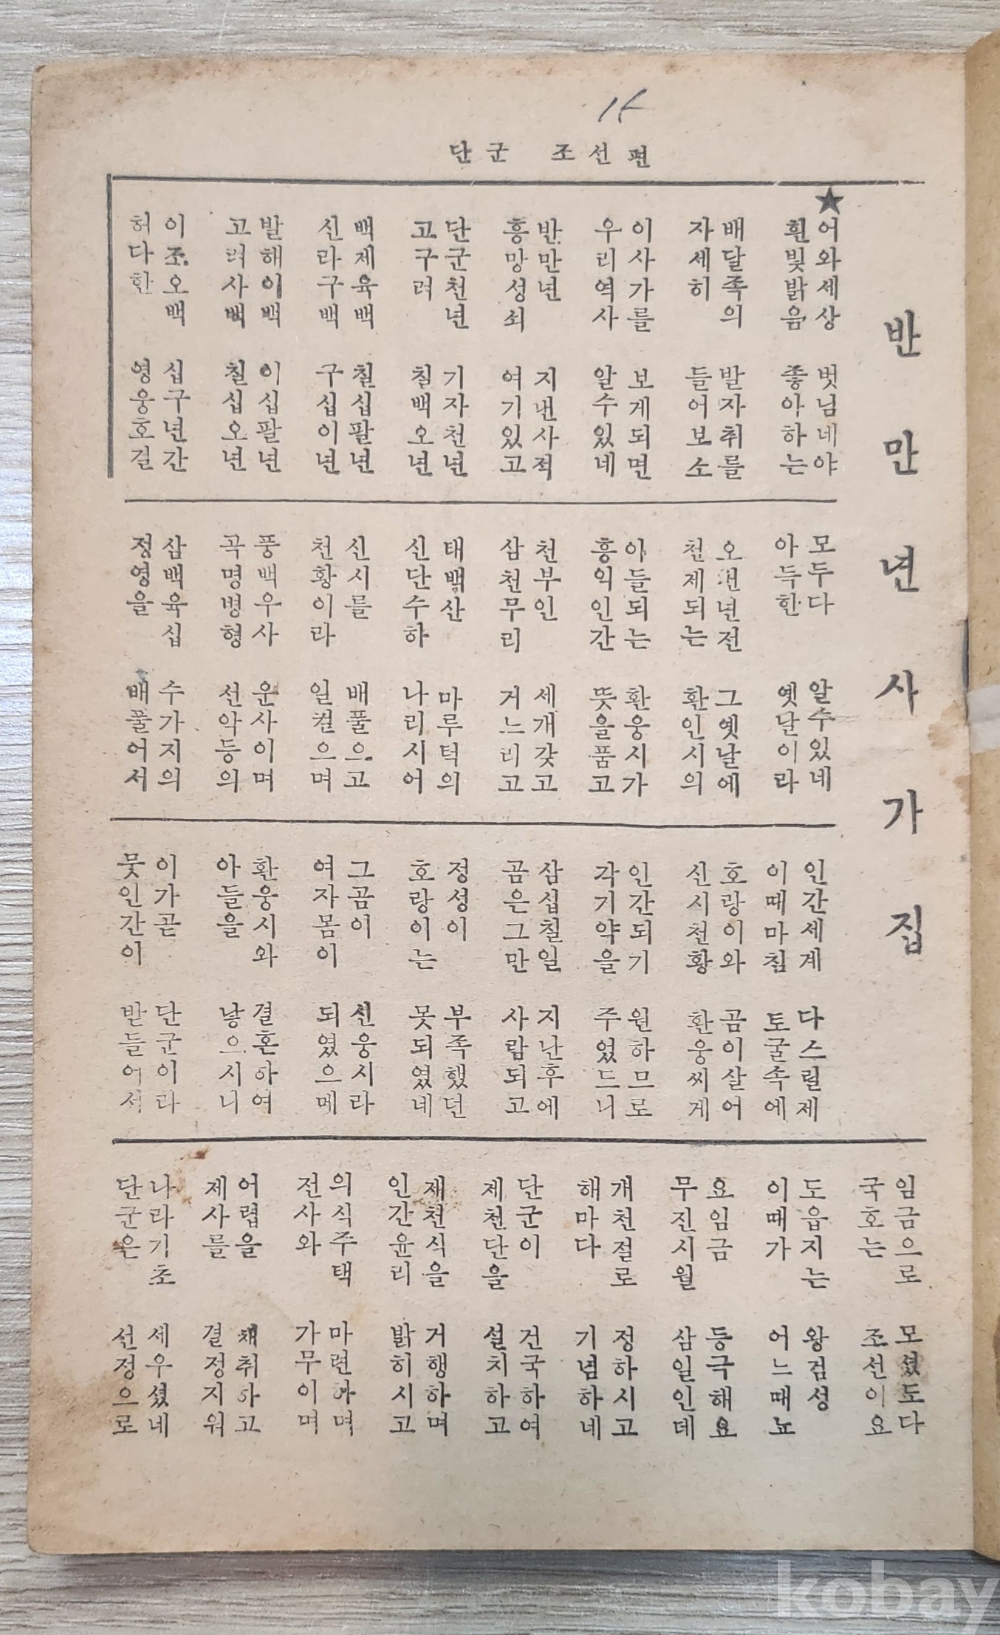 단군 조선편
반만년사가집
★어와세상 벗님네야
흰빛밝음 좋아하는
배달족의 발자취를
자세히 들어보소
이사가를 보게되면
우리역사 알수있네
반만년 지낸사적
흥망성쇠 여기있고
단군천년 기자천년
고구려 칠백오년
백제육백 칠십팔년
신라구백 구십이년
발해이백 이십팔년
고려사백 칠십오년
이조오백 십구년간
허다한 영웅호걸
모두다 알수있네
아득한 옛날이라
오천년전 그옛날에
천제되는 환인시의
아들되는 환웅시가
홍익인간 뜻을품고
천부인 세개갖고
삼천무리 거느리고
태백산 마루턱의
신단수하 나리시어
신시를 배풀으고
천황이라 일컬으며
풍백우사 운사이며
곡명병형 선악등의
삼백육십 수가지의
정영을 배풀어서
인간세계 다스릴제
이때마침 토굴속에
호랑이와 곰이살어
신시천황 환웅씨게
인간되기 원하므로
각기약을 주었드니
삼십칠일 지난후에
곰은그만 사람되고
정성이 부족했던
호랑이는 못되였네
그곰이 선웅시라
여자몸이 되였으메
환웅시와 결혼하여
아들을 낳으시니
이가곧 단군이라
뭇인간이 받들어서
임금으로 모셨도다
국호는 조선이요
도읍지는 왕검성
이때가 어느때뇨
요임금 등극해요
무진시월 삼일인데
개천절로 정하시고
해마다 기념하네
단군이 건국하여
제천단을 설치하고
제천식을 거행하며
인간윤리 밝히시고
의식주택 마련하며
전사와 가무이며
어렵을 채취하고
제사를 결정지워
나라기초 세우셨네
단군은 선정으로
kobay